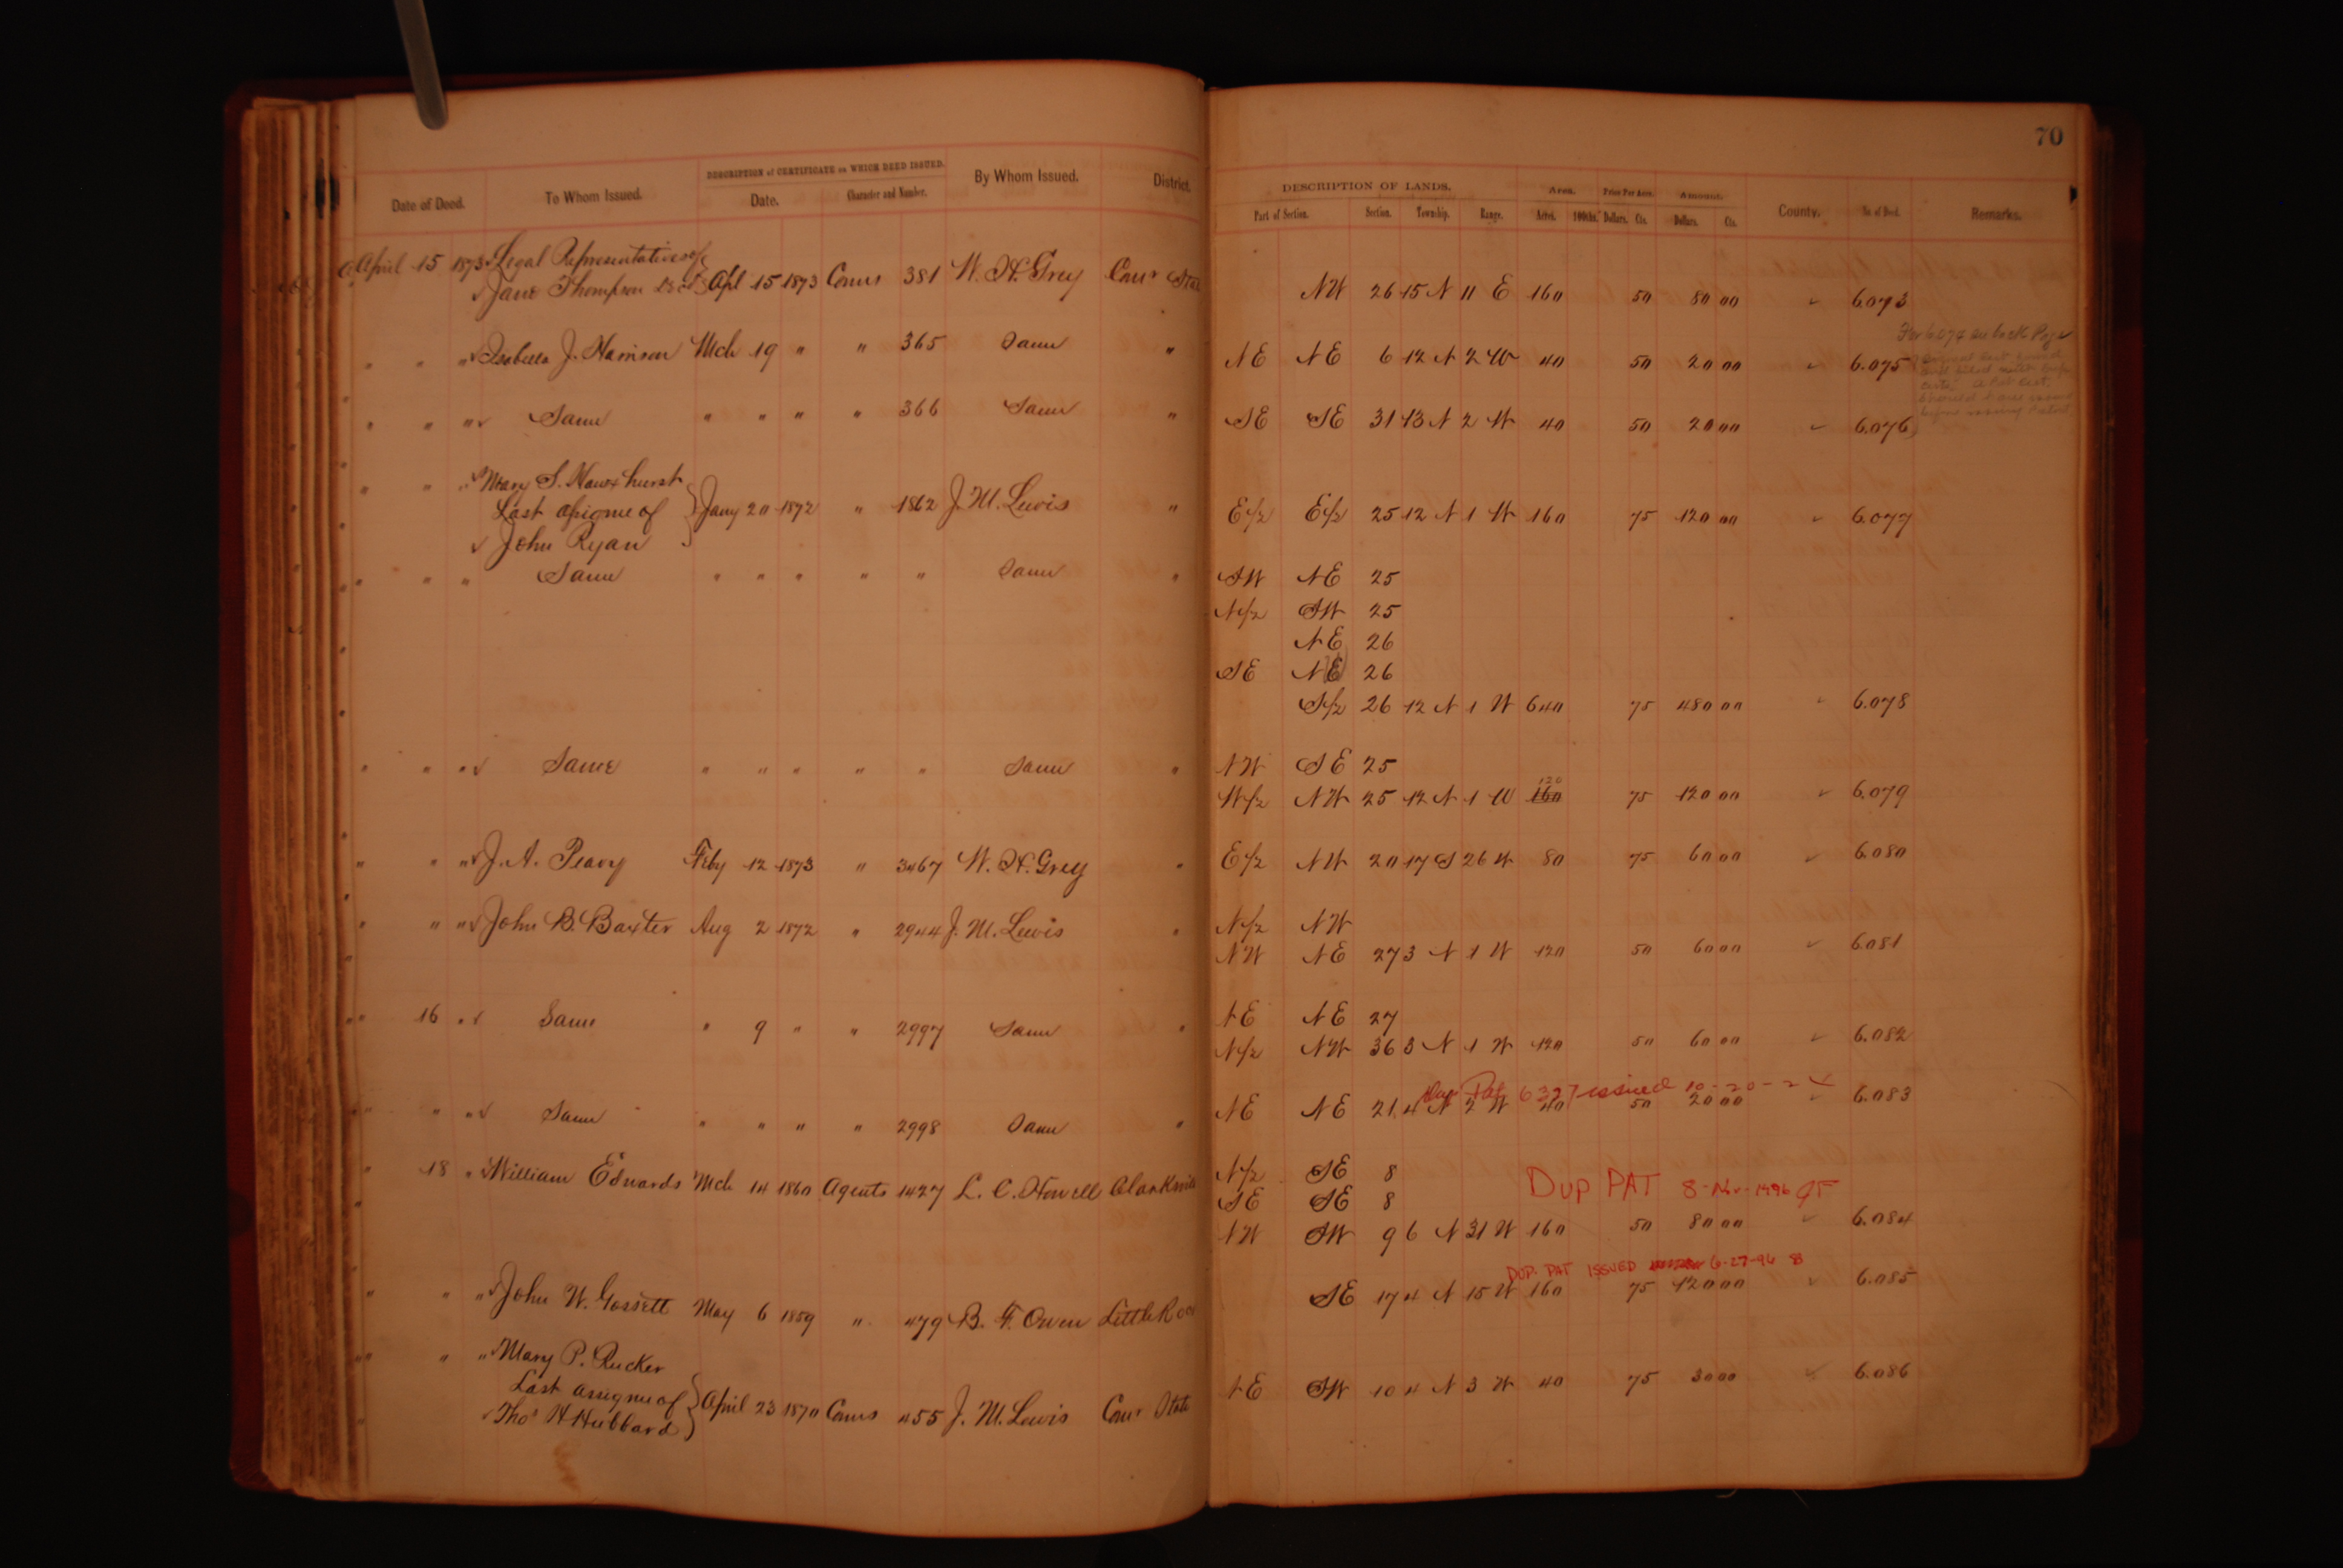 70
DESCRIPTION of CERTIFICATE on WHICH DEED ISSUED.
Date of Deed. To Whom Issued. Date. Character and Number. By Whom Issued. District.
DESCRIPTION OF LANDS. Area. Price Per Acre. Amount.
Part of Section. Section. Township. Range. Acres. 100ths. Dollars. Cts. Dollars. Cts. County. No. of Deed. Remarks.
April 15 1873 Legal Representatives of
Jane Thompson Apl 15 1873 Comrs 381 W. H. Grey Comr Sta NW 26 15 N 11 E 160 50 80 00 ✓ 6.073
For 6.074 see back Page
" " " ✓ Isabella J. Harrison Mch 19 " " 365 Same " NE NE 6 12 N 2 W 40 50 20 00 ✓ 6.075
" " " ✓ Same " " " " 366 Same " SE SE 31 13 N 2 W 40 50 20 00 ✓ 6.076
before issuing Patent
" " " ✓ Mary S. Hauxhurst
Last assignee of Jany 20 1872 " 1862 J. M. Lewis " E/2 E/2 25 12 N 1 W 160 75 120 00 ✓ 6.077
✓ John Ryan
" " " Same " " " " " Same " SW NE 25
N/2 SW 25
NE 26
SE N 26
S/2 26 12 N 1 W 640 75 480 00 ✓ 6.078
" " " ✓ Same " " " " " Same " NW SE 25
120
W/2 NW 25 12 N 1 W 160 75 120 00 ✓ 6.079
" " " ✓ J. A. Peavy Feby 12 1873 " 3467 W. H. Grey " E/2 NW 20 17 S 26 W 80 75 60 00 ✓ 6.080
" " " ✓ John B. Baxter Aug 2 1872 " 2944 J. M. Lewis " N/2 NW
NW NE 27 3 N 1 W 120 50 60 00 ✓ 6.081
" 16 " ✓ Same " 9 " " 2997 Same " NE NE 27
N/2 NW 36 3 N 1 W 120 50 60 00 ✓ 6.082
Dup Pat 6327 issued 10-20-2
" " " ✓ Same " " " " 2998 Same " NE NE 21 4 N 2 W 40 50 20 00 ✓ 6.083
" 18 " ✓ William Edwards Mch 14 1860 Agents 1427 L. C. Howell Clarksvi N/2 SE 8
DUP PAT 8-Nov-1996
SE SE 8
NW SW 9 6 N 31 W 160 50 80 00 ✓ 6.084
DUP. PAT ISSUED 6-27-96
" " " ✓ John W. Gossett May 6 1859 " 479 B. F. Owen Little Roc SE 17 4 N 15 W 160 75 120 00 ✓ 6.085
" " " ✓ Mary P. Rucker
Last assignee of April 23 1870 Comrs 455 J. M. Lewis Comr State NE SW 10 4 N 3 W 40 75 30 00 ✓ 6.086
✓ Thos H Hubbard